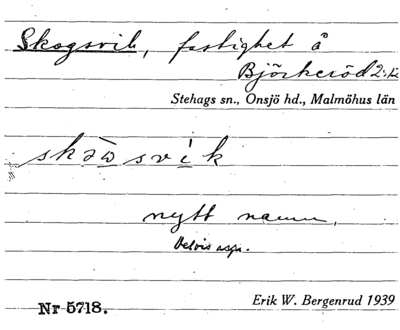 Skogsvik, fastighet å
Björkeröd 2:12
Stehags sn., Onsjö hd., Malmöhus län
skòwsvìk
nytt namn.
Delvis uspr.
Nr 5718.
Erik W. Bergenrud 1939